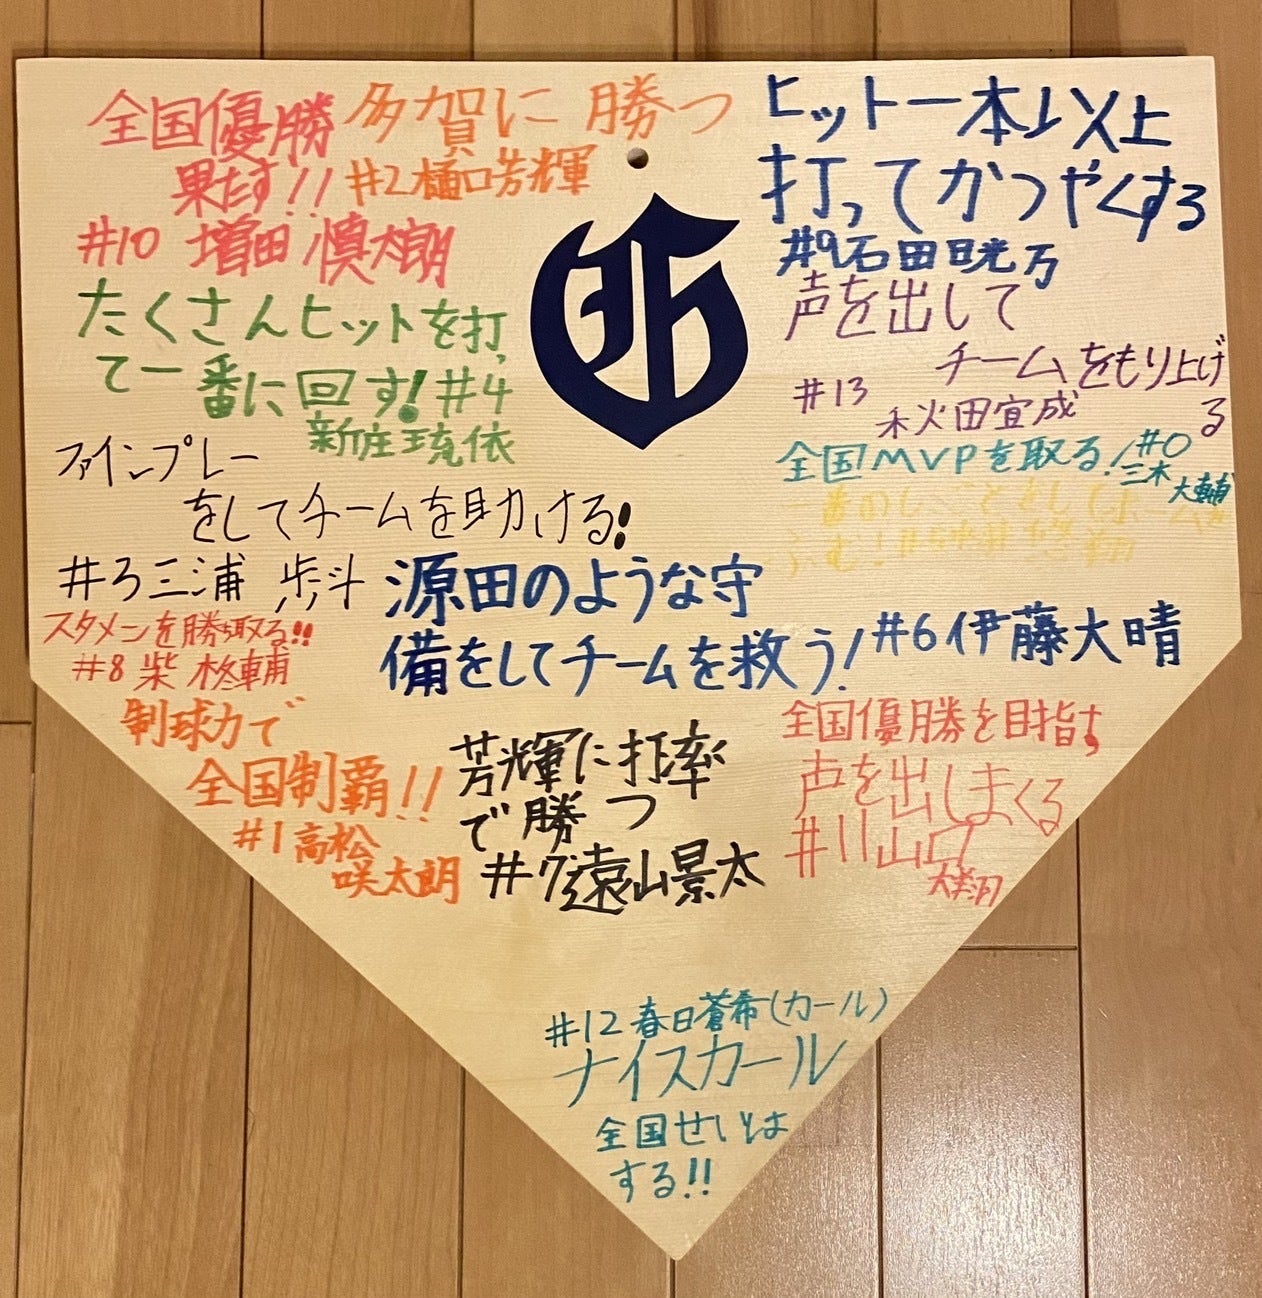 全国優勝
果たす!!
#10 増田 慎太朗
多賀に 勝つ
#2樋口芳輝
ヒット一本以上
打ってかつやくする
#9石田晄万
たくさんヒットを打っ
て一番に回す!#4
新庄琉依
G
声を出して
チームをもり上げ
る
#13
秋田宜成
全国MVPを取る!#0
三木
大輔
ファインプレー
をしてチームを助ける!
#3三浦 歩斗
源田のような守
備をしてチームを救う!
#6伊藤大晴
スタメンを勝ち取る!!
#8柴 柊輔
制球力で
全国制覇!!
#1高松
咲太朗
芳輝に打率
で勝つ
#7遠山景太
全国優勝を目指す
声を出しまくる
#11山口
大翔
#12春日蒼希(カール)
ナイスカール
全国せいは
する!!